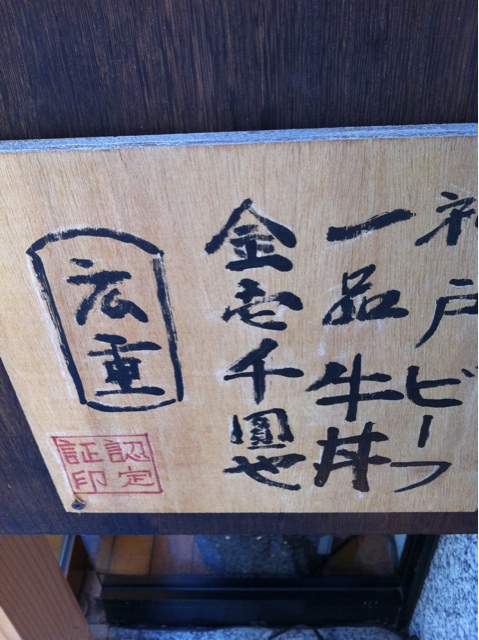 神戸ビーフ
一品牛丼
金壱千圓也
広重
認定
証印